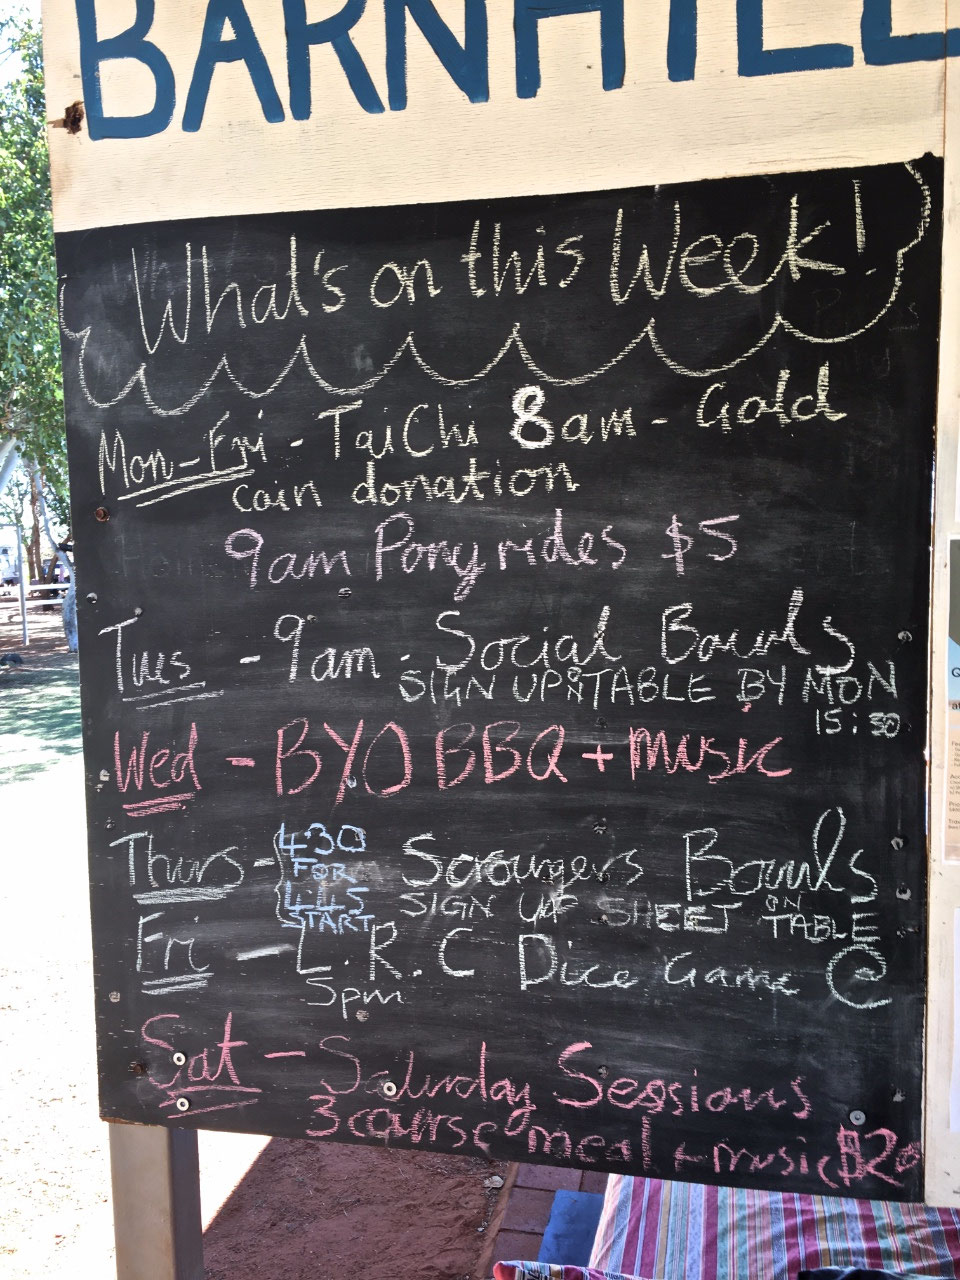 BARNHILL
What's on this Week!
Mon-Fri - TaiChi 8am - Gold
coin donation
9am Pony rides $5
Tues - 9am - Social Bowls
SIGN UP ON TABLE BY MON
15:30
Wed - BYO BBQ + music
Thurs - 430 FOR 445 START Scroungers Bowls
SIGN UP SHEET ON TABLE
Fri - L.R.C Dice Game @
5pm
Sat - Saturday Sessions
3 course meal + music $20